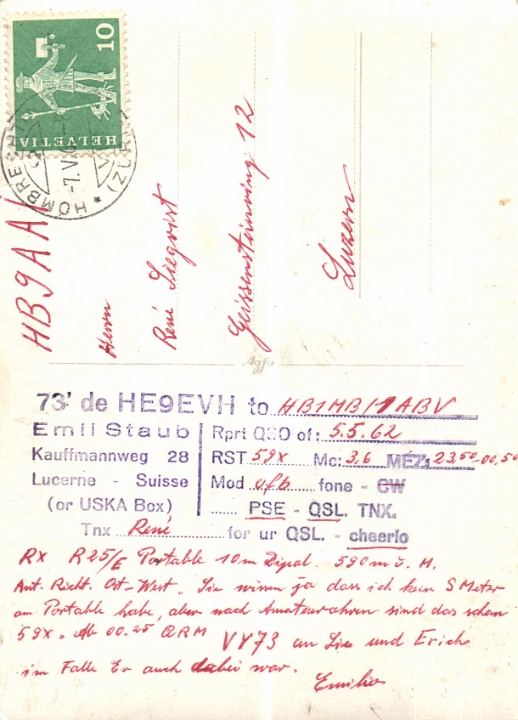 10
HELVETIA
HOMBRECHT
(ZÜRICH)
-7.V
HB9AA/
Herrn
René
Geissensteinring 12
Luzern
73' de HE9EVH to HB1MB/1ABV
Emil Staub
Kauffmannweg 28
Lucerne - Suisse
(or USKA Box)
Rprt QSO of: 5.5.62
RST 59x Mc: 3,6 MEZ: 23⁵⁰-00,50
Mod ufb fone - CW
PSE - QSL. TNX.
Tnx René for ur QSL. - cheerio
RX R25/E Portable 10m Dipol. 590m ü. M.
Ant. Richt. Ost-West. Sie wissen ja dass ich kein S Meter
am Portable habe, aber nach Amateurohren sind das schon
59x. Ab 00.25 QRM VY73 an Sie und Erich
im Falle Er auch dabei war.